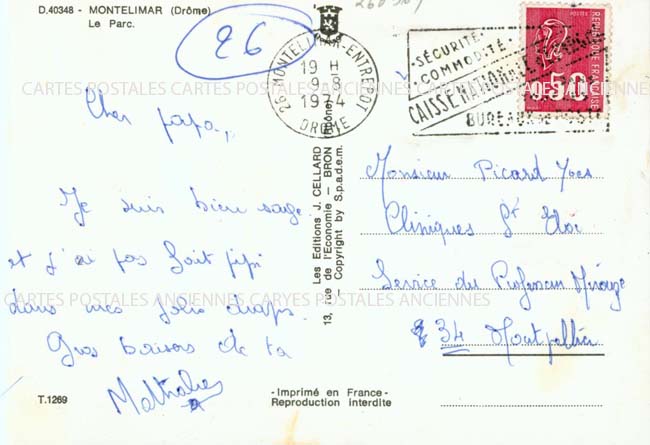 D.40348 - MONTELIMAR (Drôme)
Le Parc.
26
26 MONTELIMAR-ENTREPOT
19 H
9-8
1974
DROME
SÉCURITÉ
COMMODITÉ
CAISSE NATIONALE D'EPARGNE
BUREAUX DE POSTE
POSTES
0.50
REPUBLIQUE FRANÇAISE
CARTES POSTALES ANCIENNES CARTES POSTALES ANCIENNES
Cher papa,
Je suis bien sage
et j'ai pas fait pipi
dans mes jolis draps.
Gros baisers de ta
Nathalie
Les Editions J. CELLARD
13, rue de l'Economie - BRON (Rhône)
- Copyright by S.p.a.d.e.m.
Monsieur Picard Yves
Cliniques St Eloi
Service du Professeur Mirouze
34 Montpellier
CARTES POSTALES ANCIENNES CARYES POSTALES ANCIENNES
T.1269
- Imprimé en France -
Reproduction interdite